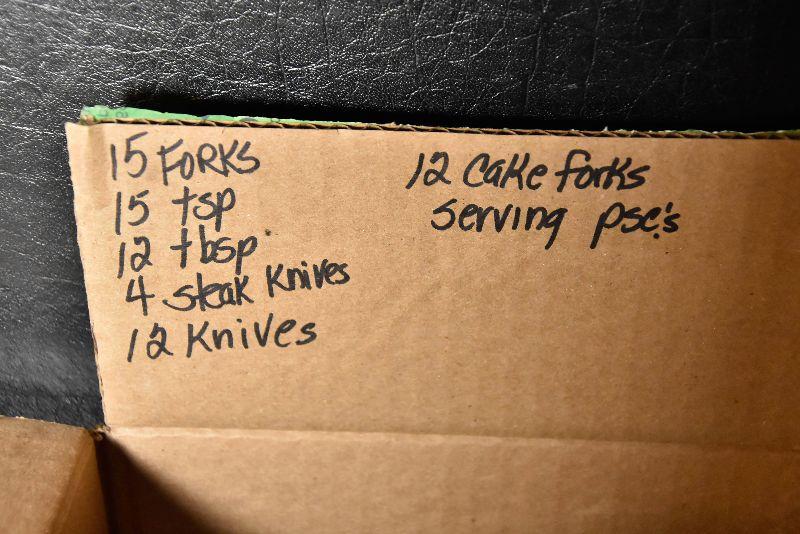 15 FORKS
15 tsp
12 tbsp
4 steak knives
12 Knives
12 cake forks
serving psc.'s